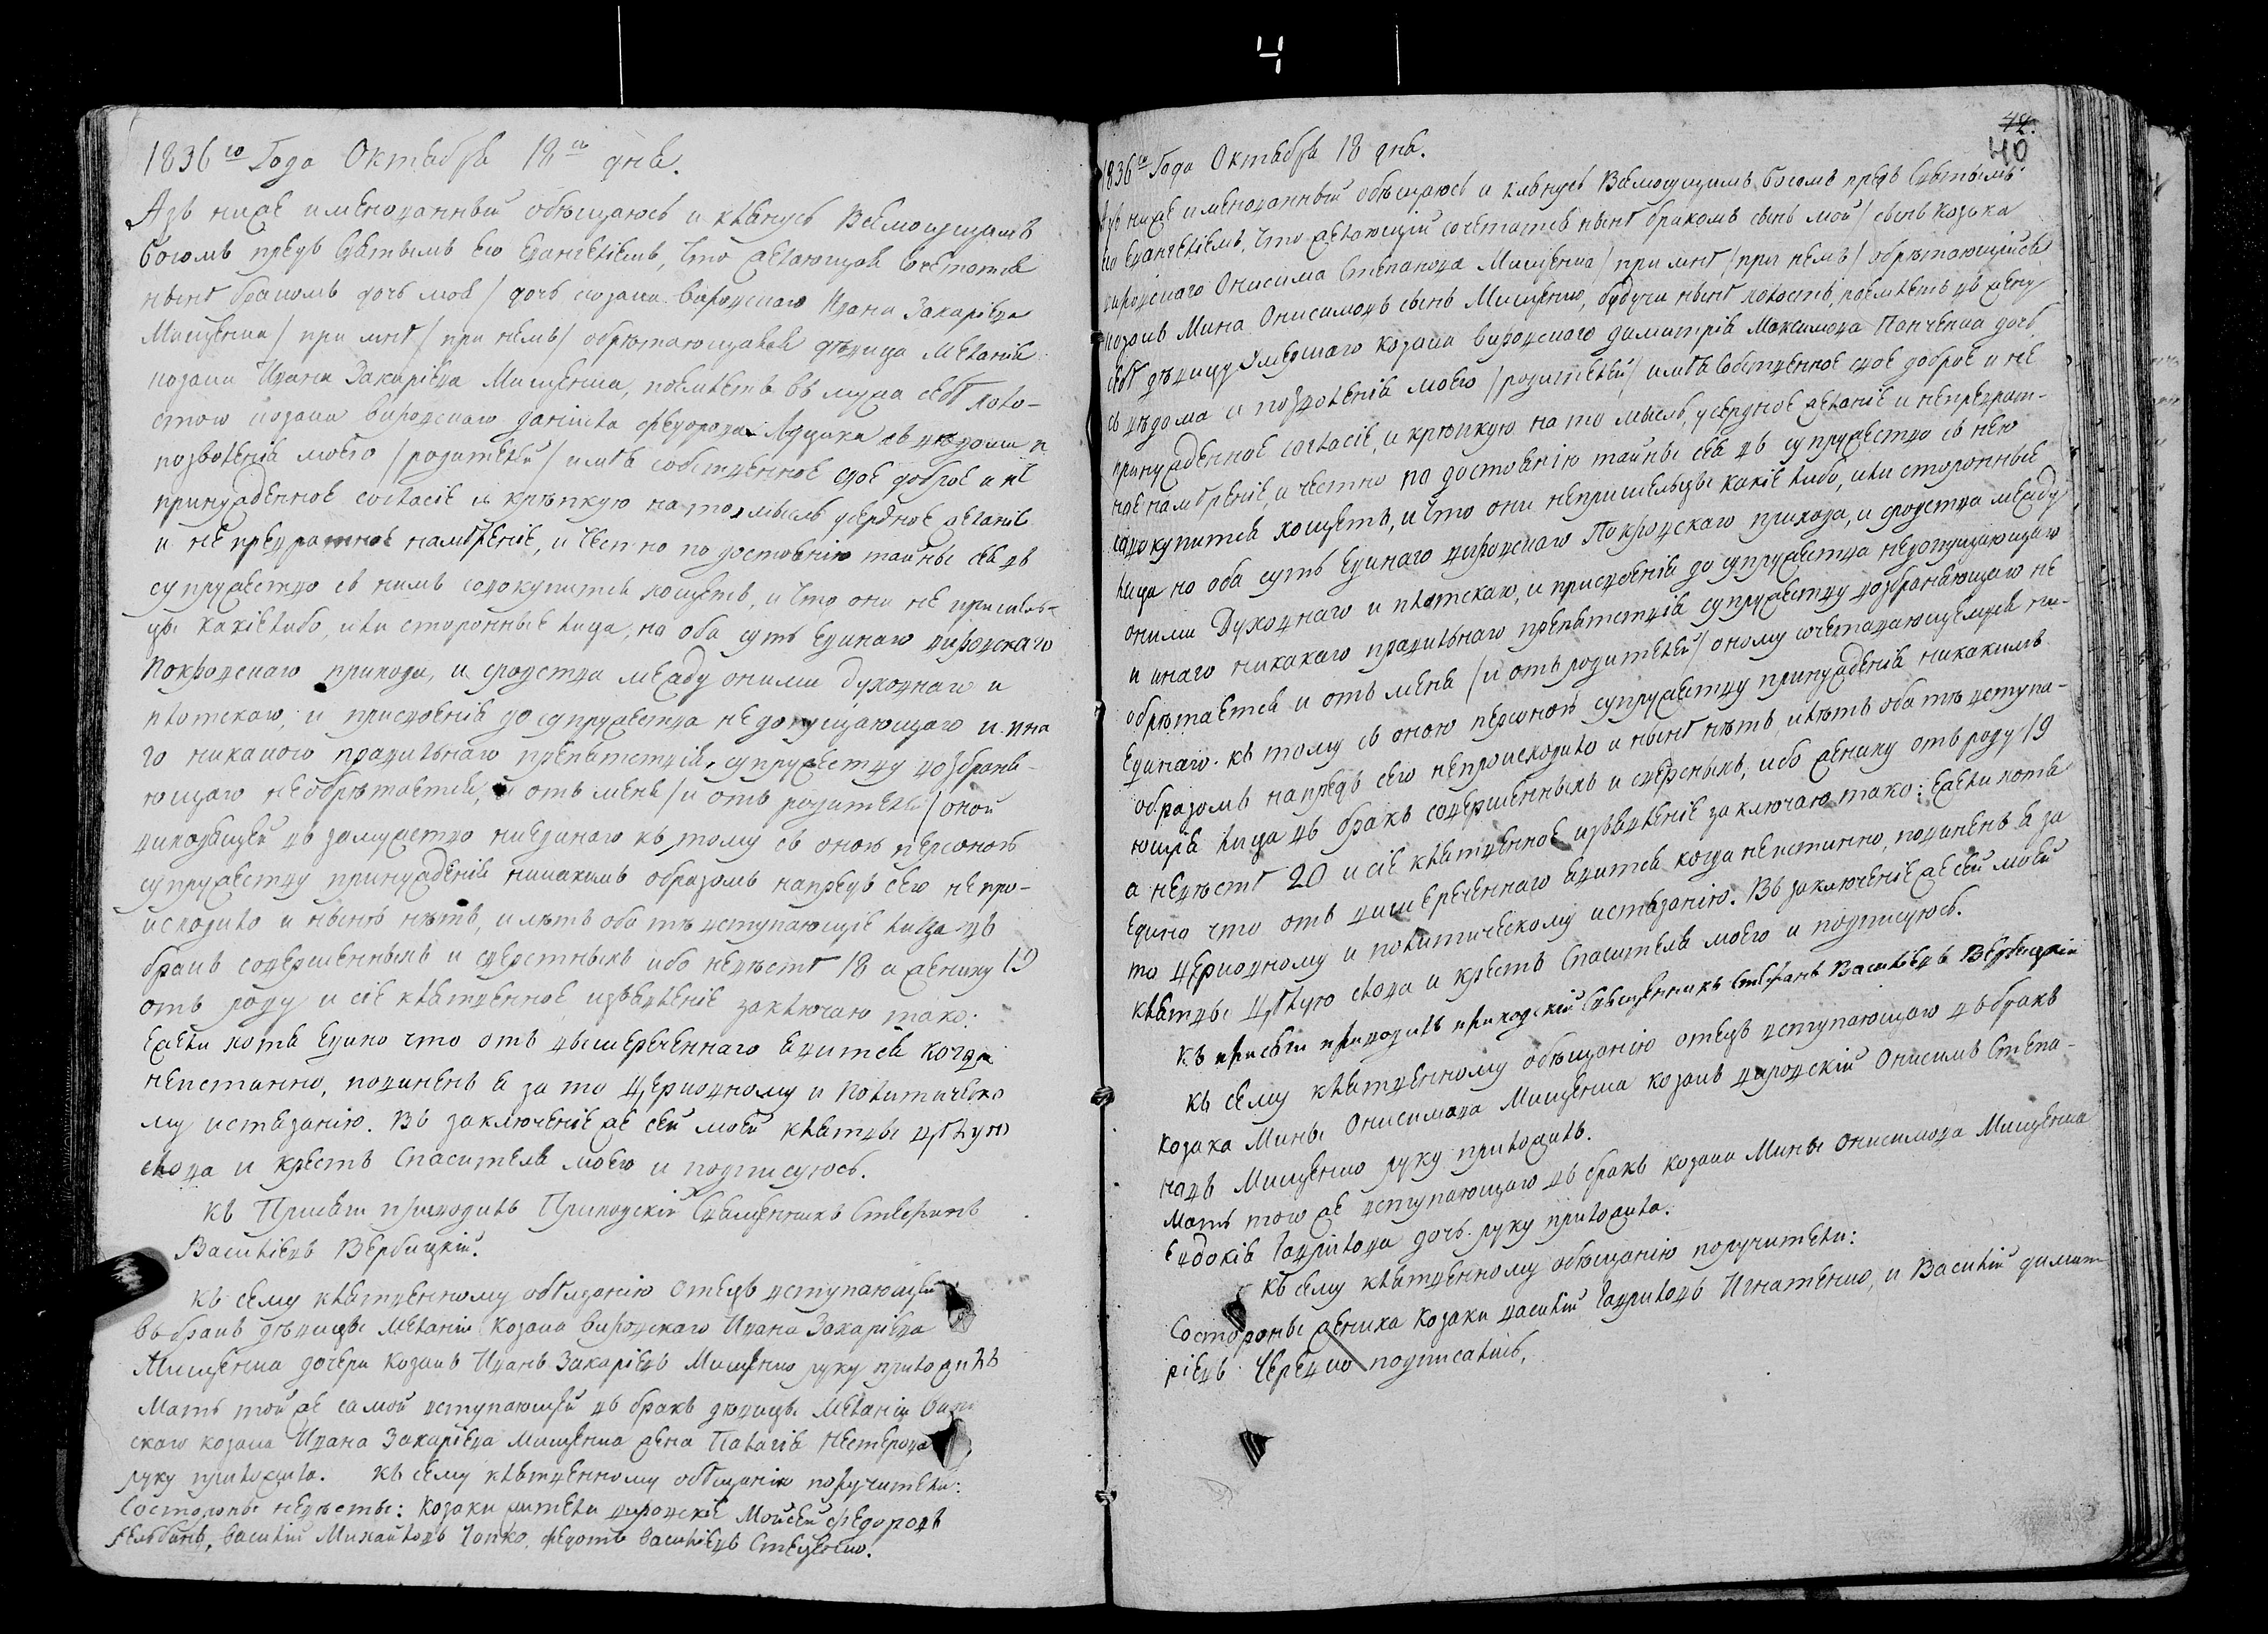 4
1836го Года Октября 18го дня.
Азъ ниже именованный обѣщаюсь и клянусь Всемогущимъ
Богомъ предъ святымъ его Евангеліемъ, что желающая сочетатся
нынѣ бракомъ дочь моя / дочь козака вировскаго Ивана Захаріева
Мищенка / при мнѣ / при немъ / обрѣтающаяся дѣвица Меланія
козака Ивана Захаріева Мищенка, поемлетъ въ мужа себѣ холо-
стого козака вировскаго Даніила Федорова съ вѣдома и
позволенія моего / родителей / имѣя собственное свое доброе и не
принужденное согласіе и крѣпкую на то мысль усердное желаніе
и не превратное намѣреніе, и честно по достоянію тайны сея въ
супружество съ нимъ совокупится хощетъ, и что они не пришель-
цы какіе либо, или сторонные лица, но оба суть единаго вировскаго
Покровскаго прихода, и сродства между оними духовнаго и
плотскаго, и присвоенія до супружества не допущающаго и ина
го никакого правильнаго препятствія, супружеству возбраня-
ющаго необрѣтается, и отъ меня / и отъ родителей / оной
виходящей въ замужство ниединаго къ тому съ оною персоною
супружеству принужденія никакимъ образомъ напредъ сего непро-
исходило и нынѣ нѣтъ, и лѣтъ оба тѣ вступающіе лица въ
бракъ совершенныхъ и сверстныхъ ибо невѣстѣ 18 а жениху 19
отъ роду и сіе клятвенное извѣщеніе заключаю тако:
ежели хотя едино что отъ вышереченнаго явится когда
неистинно, повиненъ я за то церковному и политическо
му истязанію. Въ заключеніе же сей моей клятвы цѣлую
слова и крестъ Спасителя моего и подписуюсь.
Къ Присягѣ приводилъ Приходскій Священникъ Стефанъ
Василіевъ Вербицкій.
Къ сему клятвенному обѣщанію отецъ вступающей
въ бракъ дѣвицы Меланіи козака вировскаго Ивана Захаріева
Мищенка дочери козакъ Иванъ Захаріевъ Мищенко руку приложилъ
Мать той же самой вступающей въ бракъ дѣвицы Меланіи
скаго козака Ивана Захаріева Мищенка жена Палагія Нестерова
руку приложила. Къ сему клятвенному обѣщанію поручители:
Состороны невѣсты: козаки жители вировскіе Мойсей Федоровъ
Василій Михайловъ Федотъ Василіевъ
42.
40
1836го Года Октября 18 дня.
Азъ ниже именованный обѣщаюсь и клянусь Всемогущимъ Богомъ предъ святымъ
его Евангеліемъ, что желающій сочетатся нынѣ бракомъ сынъ мой / сынъ козака
вировскаго Онисима Степанова Мищенка / при мнѣ / при немъ / обрѣтающійся
козакъ Мина Онисимовъ сынъ Мищенко, будучи нынѣ холостъ, поемлетъ въ жену
себѣ дѣвицу умершаго козака вировскаго Димитрія Максимова Панченка дочь
съ вѣдома и позволенія моего / родителей / имѣя собственное свое доброе и не
принужденное согласіе, и крѣпкую на то мысль, усердное желаніе и непреврат-
ное намѣреніе, и честно по достоянію тайны сея въ супружество съ нею
совокупится хощетъ, и что они непришельцы какіе либо, или сторонные
лица но оба суть единаго вировскаго Покровскаго прихода, и сродства между
оними духовнаго и плотскаго, и присвоенія до супружества недопущающаго
и инаго никакаго правильнаго препятствія супружеству возбраняющаго не
обрѣтается и отъ меня / и отъ родителей / оному сочетавающемуся ни-
единаго. къ тому съ оною персоною супружеству принужденія никакимъ
образомъ напредъ сего непроисходило и нынѣ нѣтъ, и лѣтъ оба тѣ вступа-
ющія лица въ бракъ совершенныхъ и сверсныхъ, ибо жениху отъ роду 19
а невѣстѣ 20 и сіе клятвенное извѣщеніе заключаю тако: ежели хотя
едино что отъ вишереченнаго явится когда неистинно, повиненъ я за
то церковному и политическому истязанію. Въ заключеніе же сей моей
клятвы цѣлую слова и крестъ Спасителя моего и подписуюсь.
Къ присяги приводилъ приходскій Священникъ Стефанъ Василіевъ Вербицкій
Къ сему клятвенному обѣщанію отецъ вступающаго въ бракъ
козака Мины Онисимова Мищенка козакъ вировскій Онисимъ Степа-
новъ Мищенко руку приложилъ.
Мать того же вступающаго въ бракъ козака Мины Онисимова Мищенка
Евдокія Гаврилова дочь руку приложила.
Къ сему клятвенному обѣщанію поручители:
Состороны жениха козаки Василій Гавриловъ Игнатенко, и Василій Димит
ріевъ подписались,